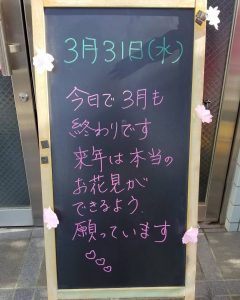 3月31日(水)
今日で3月も
終わりです
来年は本当の
お花見が
できるよう
願っています